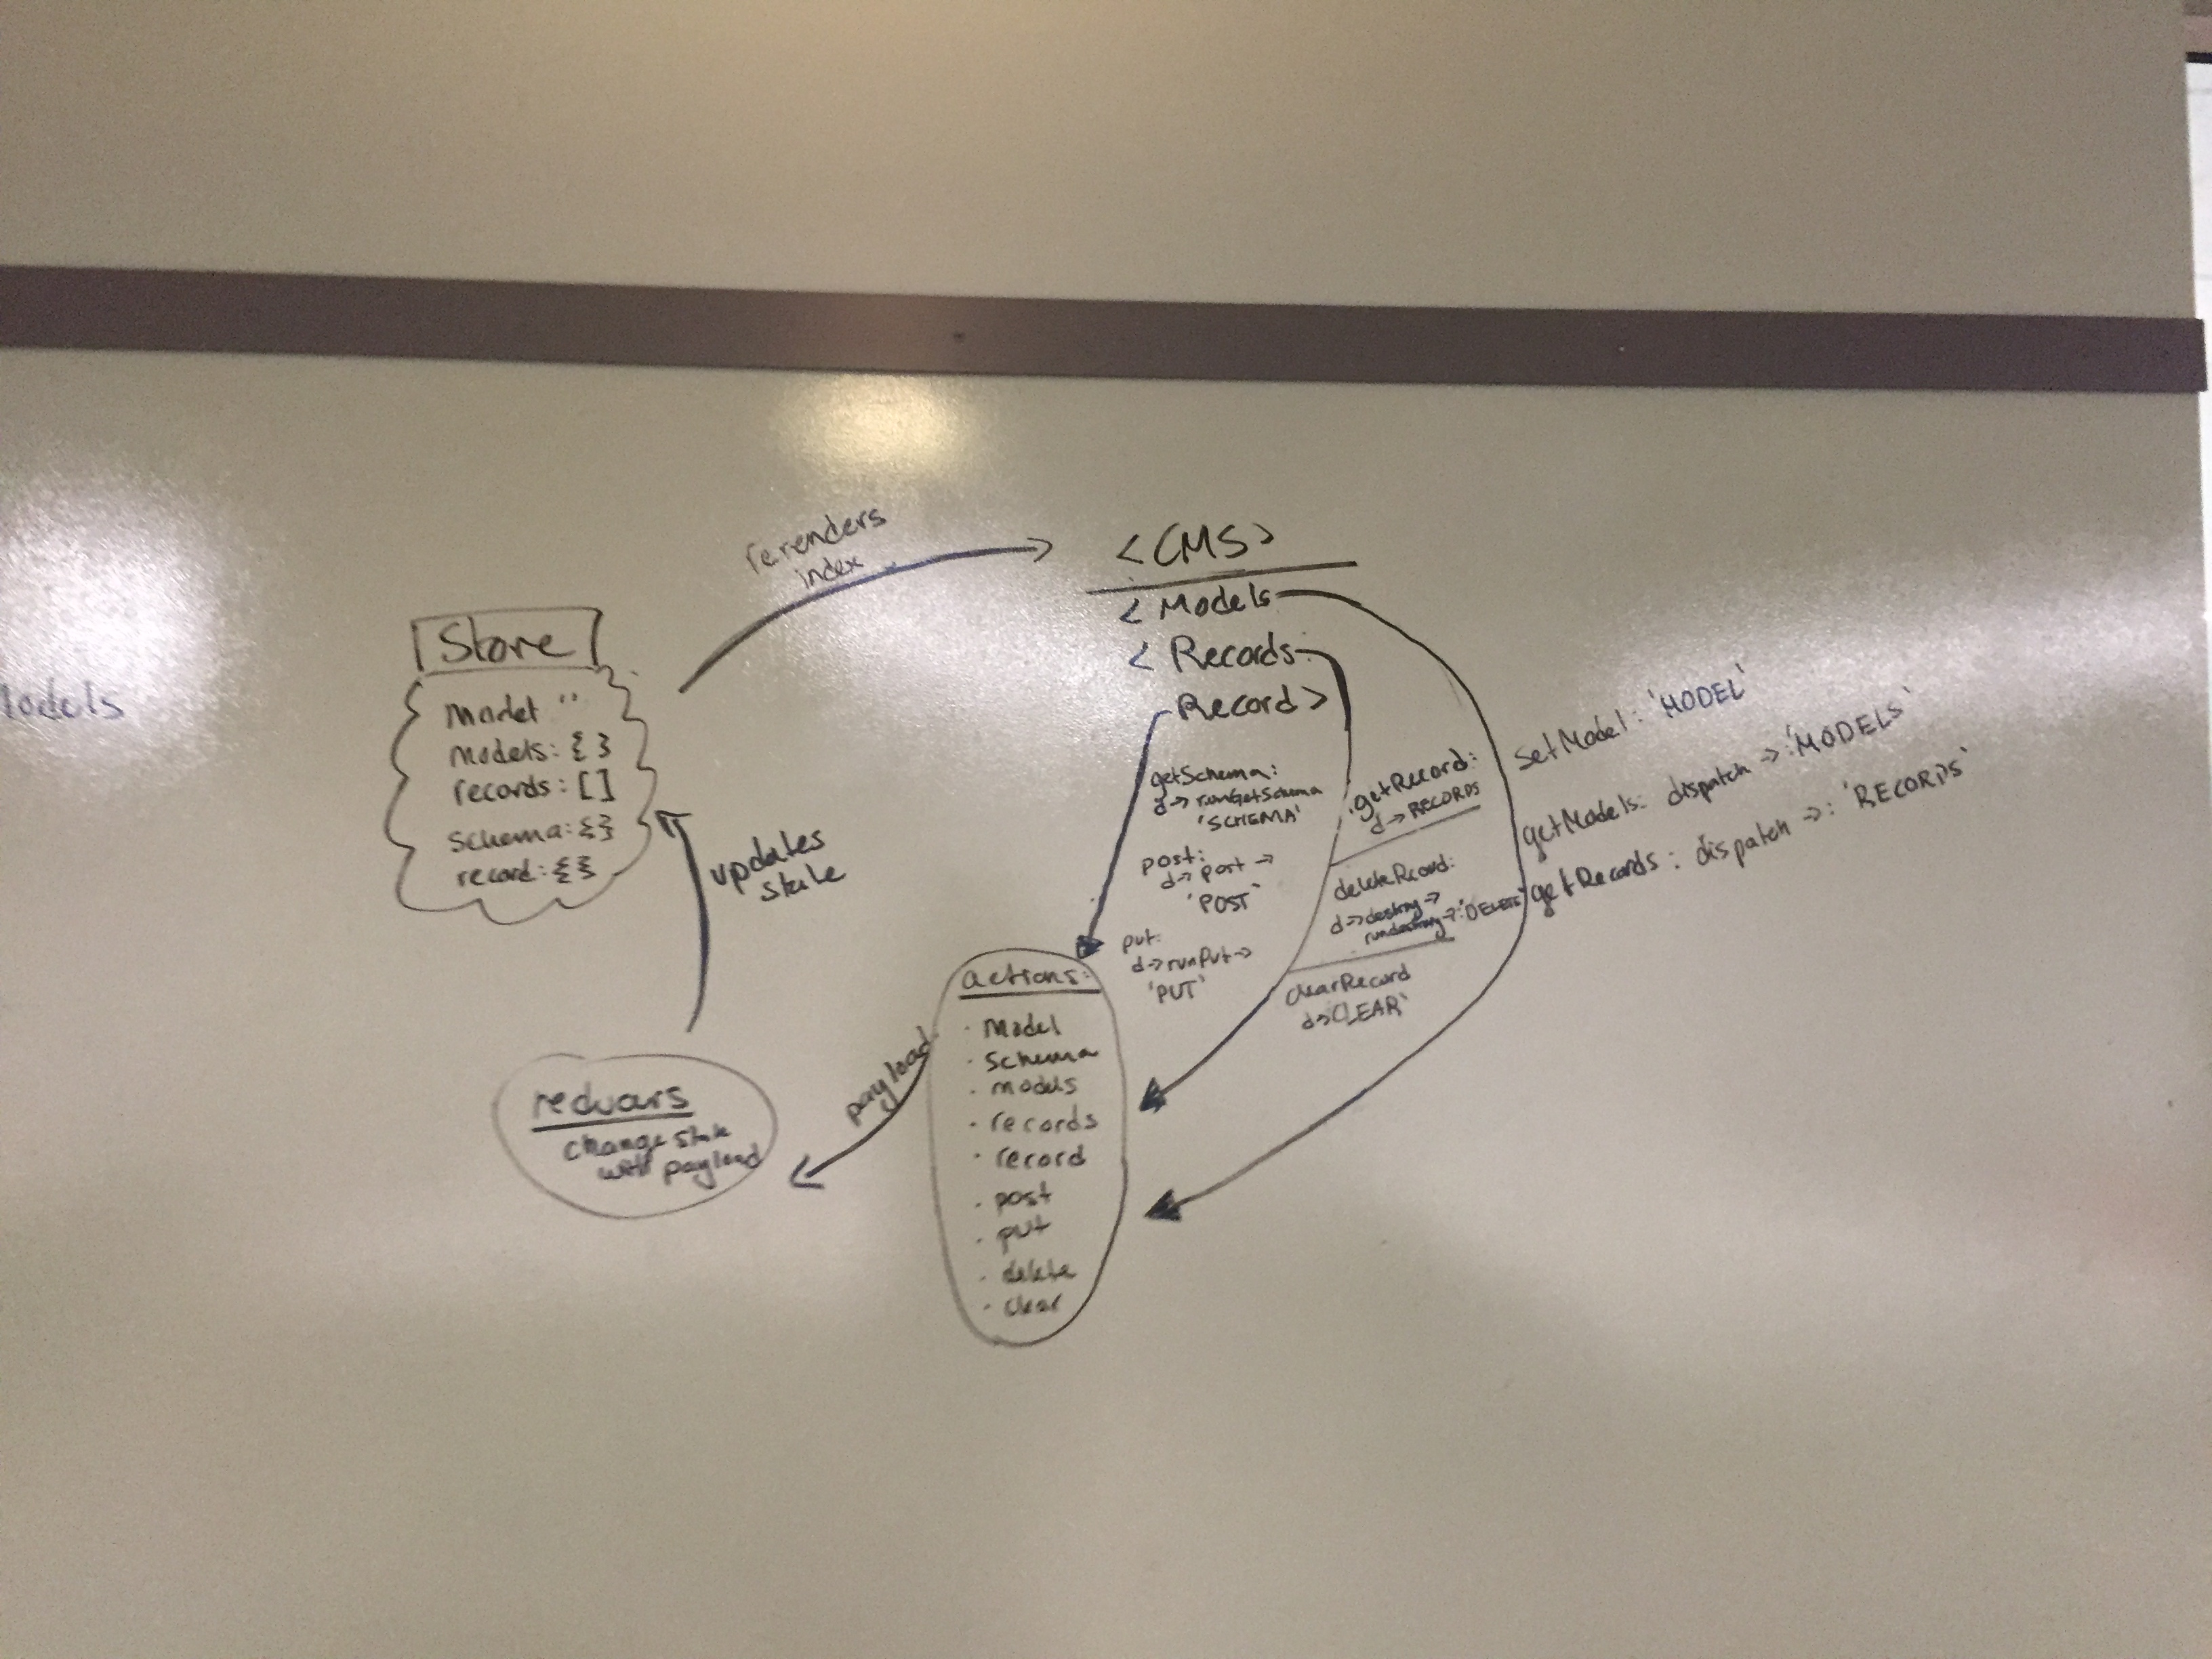 rerenders
index
<CMS>
< Models
< Records
Record>
Store
Model ''
models: { }
records: [ ]
schema: { }
record: { }
updates
state
Models
getSchema:
d -> runGetSchema
'SCHEMA'
post:
d -> post ->
'POST'
put:
d -> runPut ->
'PUT'
getRecord:
d -> RECORDS
deleteRecord:
d -> destroy ->
rundestroy -> 'DELETE'
clearRecord
d -> CLEAR'
setModel: 'MODEL'
getModels: dispatch -> : 'MODELS'
getRecords: dispatch -> : 'RECORDS'
actions:
· Model
· Schema
· models
· records
· record
· post
· put
· delete
· clear
payload
change state
with payload